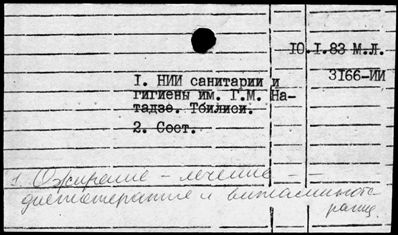 10.I.83 М.Л.
3166-ИИ
I. НИИ санитарии и
гигиены им. Г.М. На-
тадзе. Тбилиси.
2. Сост.
1. Ожирение - лечение -
диетотерапия и витаминов